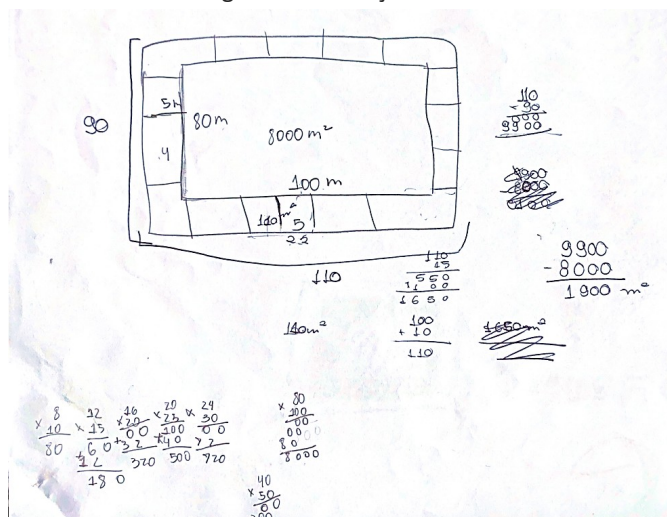 90
5m
80m
8000 m²
.4
100 m
110m²
5
22
110
110
× 90
000
9900
9900
- 8000
1900 m²
110
15
550
1100
1650
140m²
100
+ 10
110
1650m²
8
× 10
80
12
× 15
60
+12
180
16
× 20
00
+32
320
20
× 25
100
+40
500
24
× 30
00
720
80
× 100
00
00
80
8000
40
× 50
00